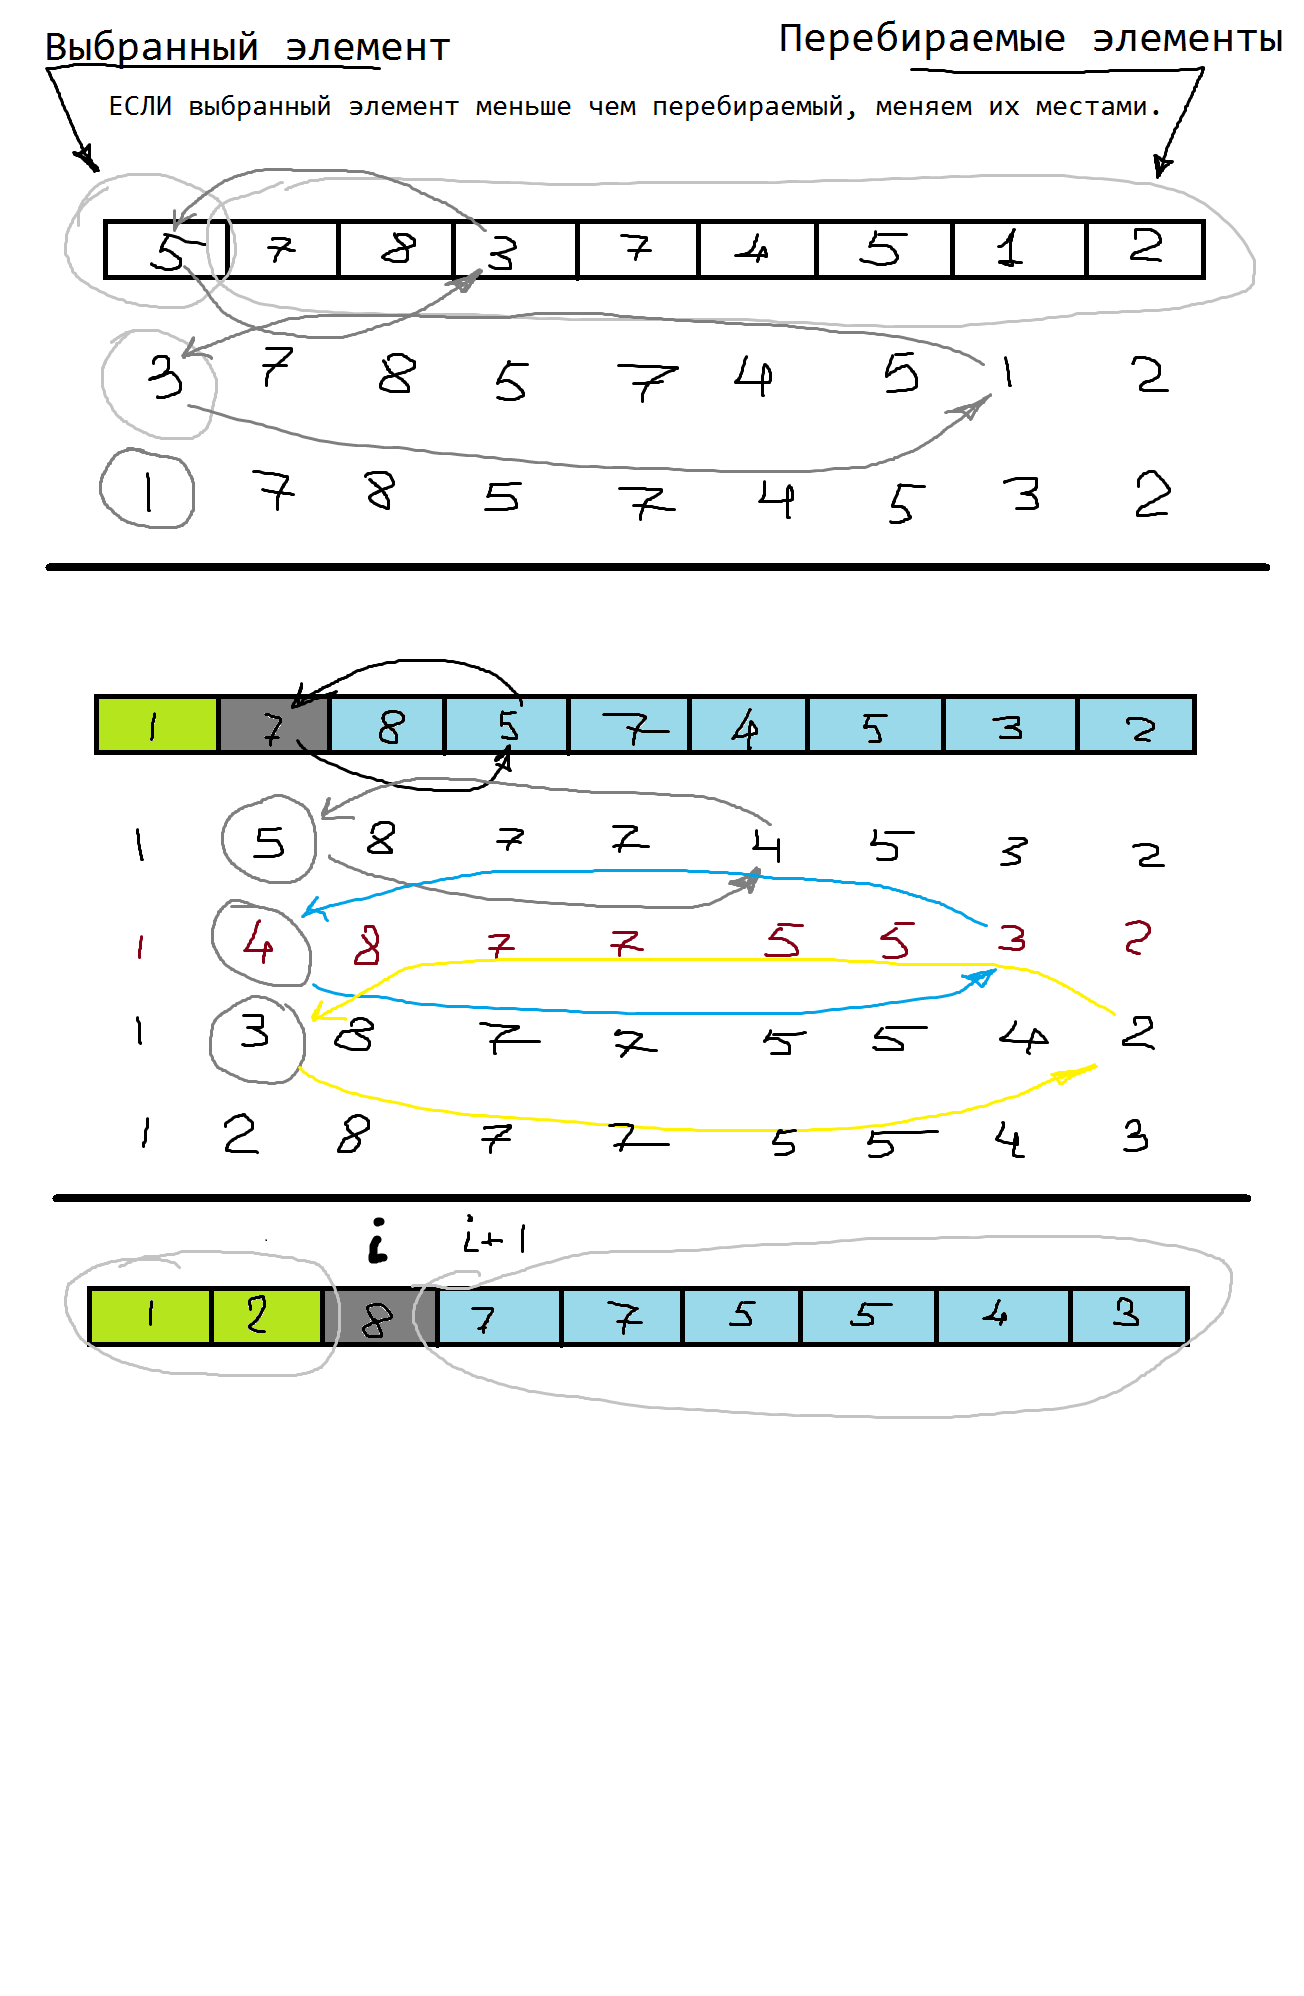 Выбранный элемент
Перебираемые элементы
ЕСЛИ выбранный элемент меньше чем перебираемый, меняем их местами.
5 7 8 3 7 4 5 1 2
3 7 8 5 7 4 5 1 2
1 7 8 5 7 4 5 3 2
1 7 8 5 7 4 5 3 2
1 5 8 7 7 4 5 3 2
1 4 8 7 7 5 5 3 2
1 3 8 7 7 5 5 4 2
1 2 8 7 7 5 5 4 3
i i+1
1 2 8 7 7 5 5 4 3